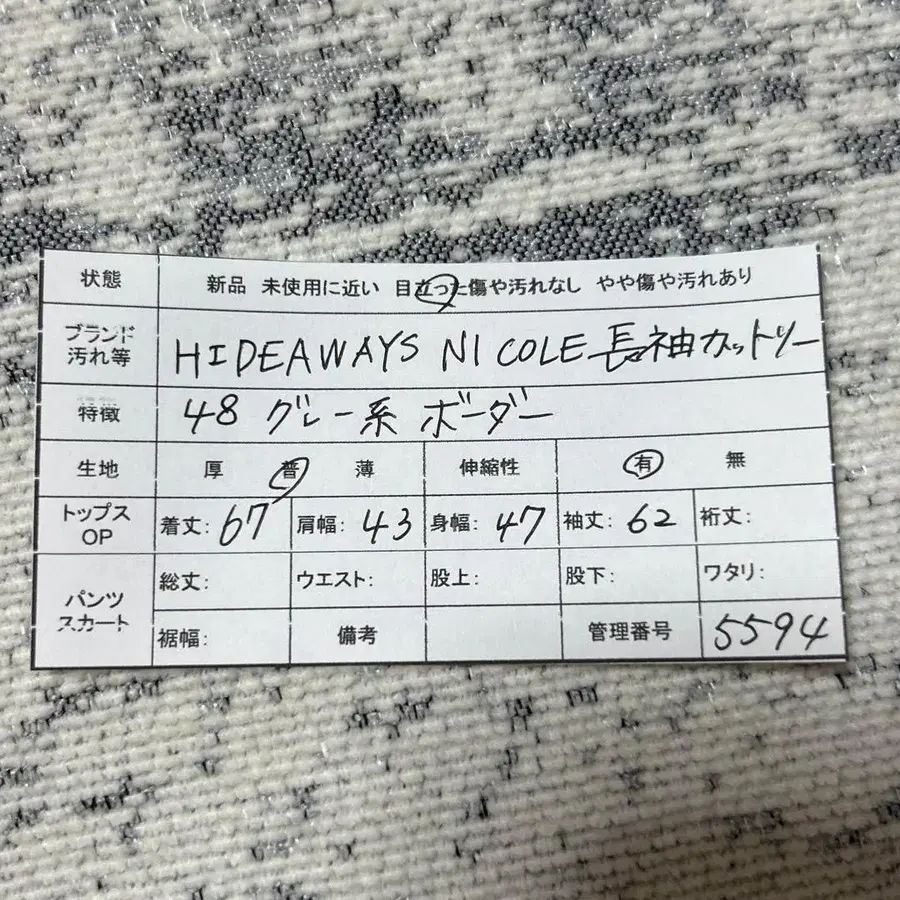 状態 新品 未使用に近い 目立った傷や汚れなし やや傷や汚れあり
ブランド
汚れ等 HIDEAWAYS NICOLE 長袖カットソー
特徴 48 グレー系 ボーダー
生地 厚 普 薄 伸縮性 有 無
トップス
OP 着丈: 67 肩幅: 43 身幅: 47 袖丈: 62 裄丈:
パンツ
スカート 総丈: ウエスト: 股上: 股下: ワタリ:
裾幅: 備考 管理番号 5594